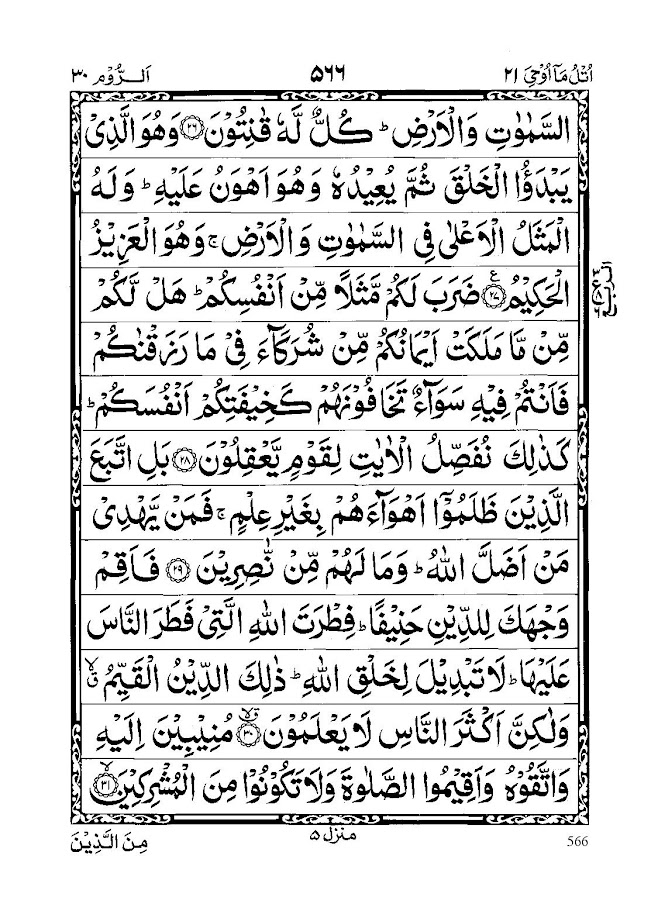 اُتْلُ مَآ اُوْحِىَ ٢١ ٥٦٦ اَلرُّوْم ٣٠
السَّمٰوٰتِ وَالْاَرْضِ ؕ كُلٌّ لَّهٗ قٰنِتُوْنَ ۝٢٦ وَهُوَ الَّذِىْ
يَبْدَؤُا الْخَلْقَ ثُمَّ يُعِيْدُهٗ وَهُوَ اَهْوَنُ عَلَيْهِ ؕ وَلَهُ
الْمَثَلُ الْاَعْلٰى فِى السَّمٰوٰتِ وَالْاَرْضِ ۚ وَهُوَ الْعَزِيْزُ
الْحَكِيْمُ ۝٢٧ ع ضَرَبَ لَكُمْ مَّثَلًا مِّنْ اَنْفُسِكُمْ ؕ هَلْ لَّكُمْ
مِّنْ مَّا مَلَكَتْ اَيْمَانُكُمْ مِّنْ شُرَكَآءَ فِىْ مَا رَزَقْنٰكُمْ
فَاَنْتُمْ فِيْهِ سَوَآءٌ تَخَافُوْنَهُمْ كَخِيْفَتِكُمْ اَنْفُسَكُمْ ؕ
كَذٰلِكَ نُفَصِّلُ الْاٰيٰتِ لِقَوْمٍ يَّعْقِلُوْنَ ۝٢٨ بَلِ اتَّبَعَ
الَّذِيْنَ ظَلَمُوْٓا اَهْوَآءَهُمْ بِغَيْرِ عِلْمٍ ۚ فَمَنْ يَّهْدِىْ
مَنْ اَضَلَّ اللّٰهُ ؕ وَمَا لَهُمْ مِّنْ نّٰصِرِيْنَ ۝٢٩ فَاَقِمْ
وَجْهَكَ لِلدِّيْنِ حَنِيْفًا ؕ فِطْرَتَ اللّٰهِ الَّتِىْ فَطَرَ النَّاسَ
عَلَيْهَا ؕ لَا تَبْدِيْلَ لِخَلْقِ اللّٰهِ ؕ ذٰلِكَ الدِّيْنُ الْقَيِّمُ ۙق
وَلٰكِنَّ اَكْثَرَ النَّاسِ لَا يَعْلَمُوْنَ ۝٣٠ ۙق مُنِيْبِيْنَ اِلَيْهِ
وَاتَّقُوْهُ وَاَقِيْمُوا الصَّلٰوةَ وَلَا تَكُوْنُوْا مِنَ الْمُشْرِكِيْنَ ۝٣١ ۙ
566 منزل ٥ مِنَ الَّذِيْنَ